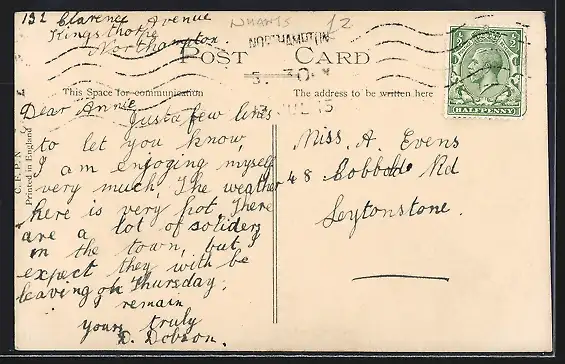 132 Clarence Avenue
Kingsthorpe
Northampton.
NHANTS 12
NORTHAMPTON
POST CARD
5. 30 PM
JUL 15
HALFPENNY
This Space for communication
The address to be written here
C. F. P. N
Printed in England
Dear Annie
Just a few lines
to let you know,
I am enjoying myself
very much, The weather
here is very hot, There
are a lot of soliders
in the town, but I
expect they with be
leaving on Thursday,
I remain
yours truly
D. Dobson.
Miss. A. Evens
48 Cobbold Rd
Leytonstone.